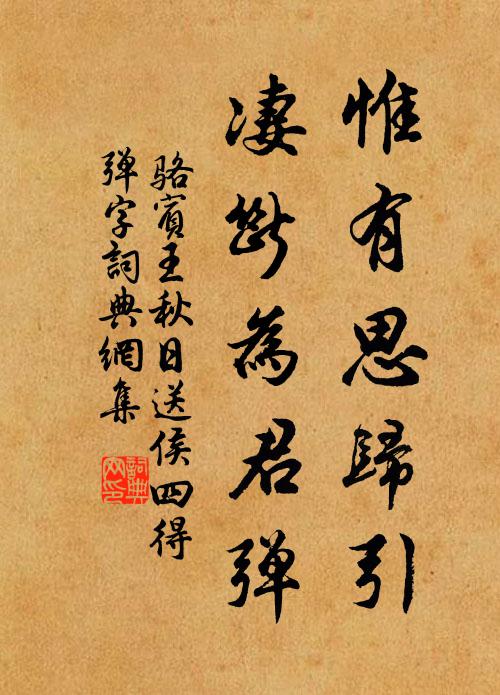 惟有思歸引
凄斷為君彈
駱賓王秋日送侯四得
彈字詞典網集
詞典
网印